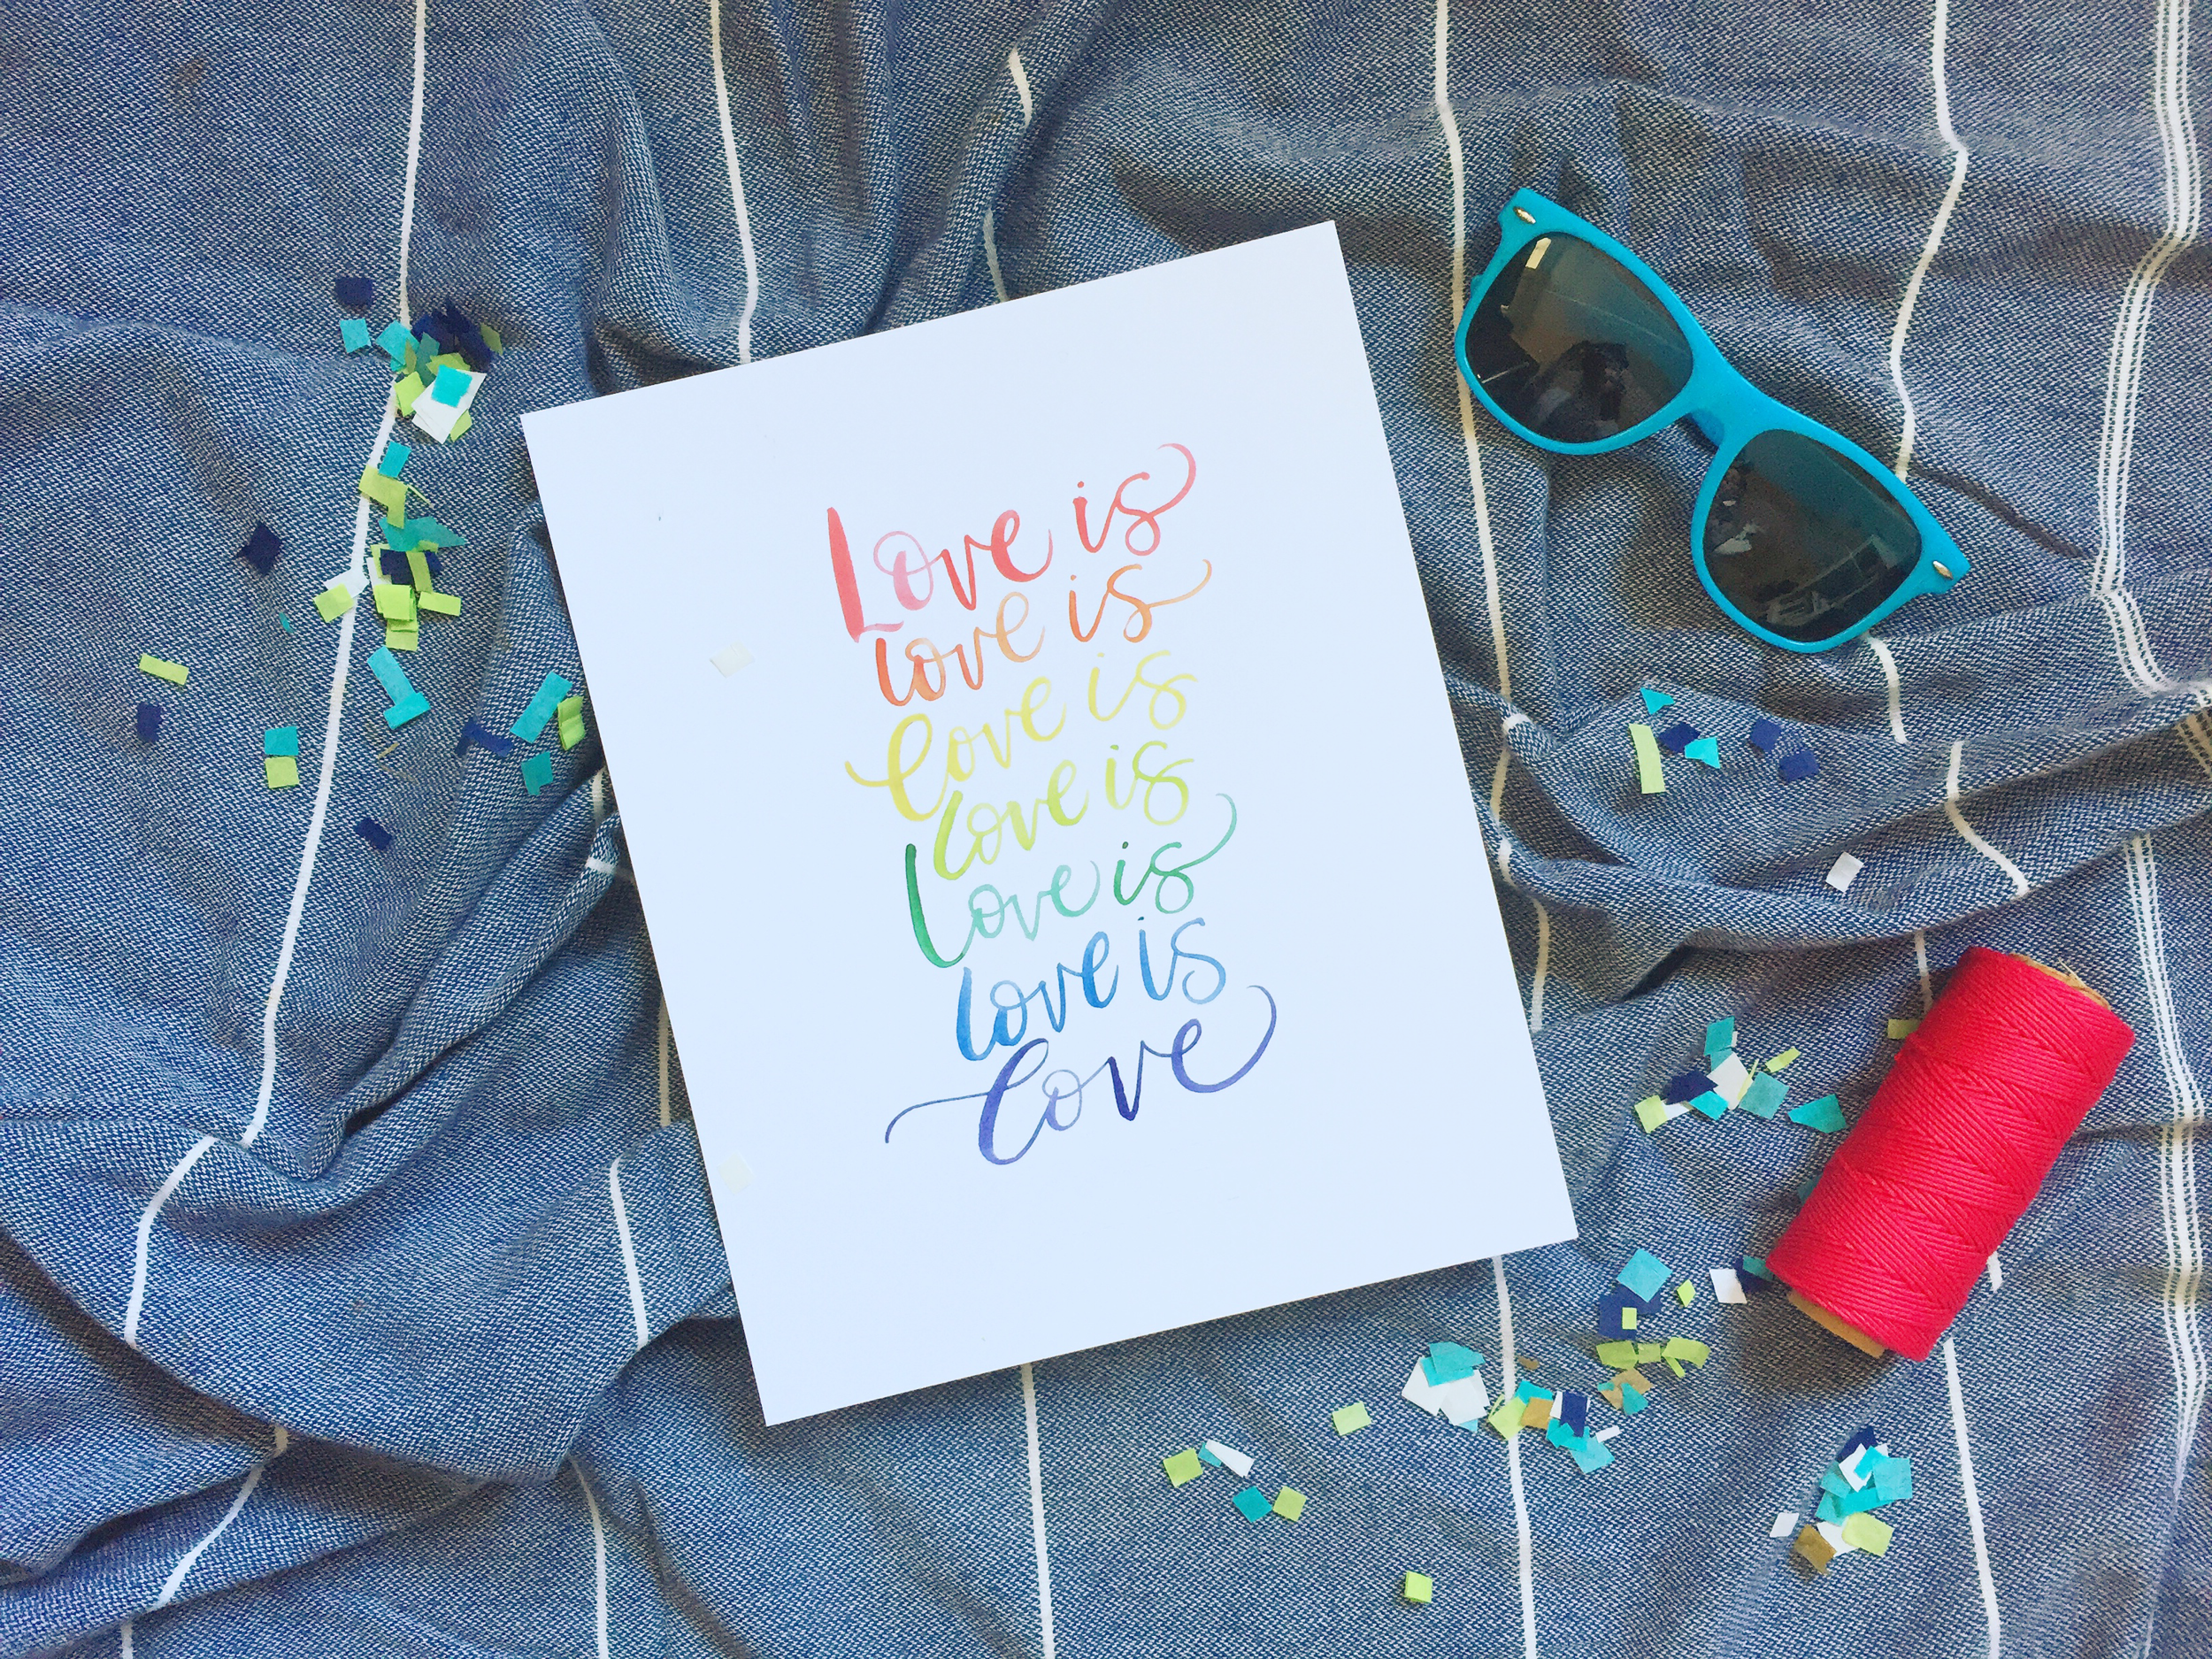 Love is
love is
love is
love is
love is
love is
love